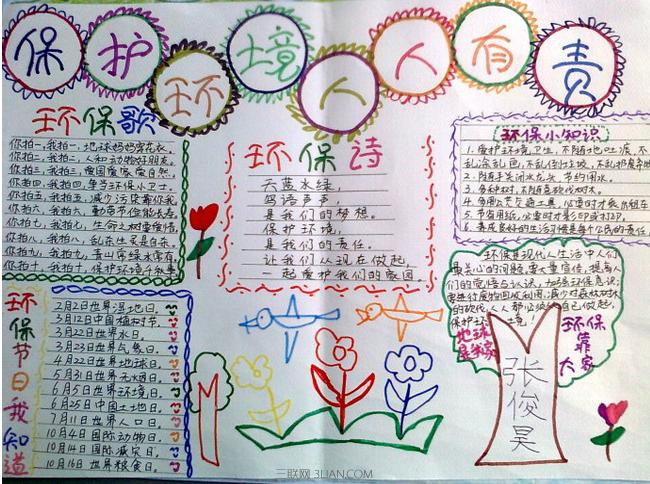 保护环境人人有责
环保歌
你拍一,我拍一,地球妈妈穿花衣。
你拍二,我拍二,人和动物好朋友。
你拍三,我拍三,爱国爱家爱自然。
你拍四,我拍四,争当环保小卫士。
你拍五,我拍五,减少污染靠你我。
你拍六,我拍六,勤俭节俭能长寿。
你拍七,我拍七,生命之树要爱惜。
你拍八,我拍八,乱杀生灵是自杀。
你拍九,我拍九,青山常绿水常有。
你拍十,我拍十,保护环境
环保诗
天蓝水绿,
鸟语声声,
是我们的梦想。
保护环境,
是我们的责任。
让我们从现在做起,
一起爱护我们的家园
环保小知识
1.爱护环境卫生,不随地吐痰,不
乱涂乱画,不乱倒垃圾,不乱扔废弃物
2.随手关闭水龙头,节约用水。
3.多种树,不随意砍伐树木。
4.多用公共交通工具,必要时才乘出租车
5.节省用纸,必要时才影印或打印。
6.养成良好的生活习惯是每个公民的责任。
环保是现代人生活中人们
最关心的问题,要大量宣传,提高人
们的觉悟与认识,加强环保意识;
的砍伐,人人都必须从自己做起,
保护环境!
地球
是我家
环保
靠
大家
张俊昊
环保节日我知道
2月2日世界湿地日。
3月12日中国植树节。
3月22日世界水日。
3月23日世界气象日。
4月22日世界地球日。
5月31日世界无烟日。
6月5日世界环境日。
6月25日中国土地日。
7月11日世界人口日。
10月4日国际动物日。
10月14日国际减灾日。
10月16日世界粮食日。
三联网 3LIAN.COM